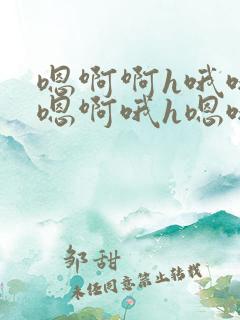 嗯啊啊h哦
嗯啊哦h嗯
邹甜
未经同意禁止转载